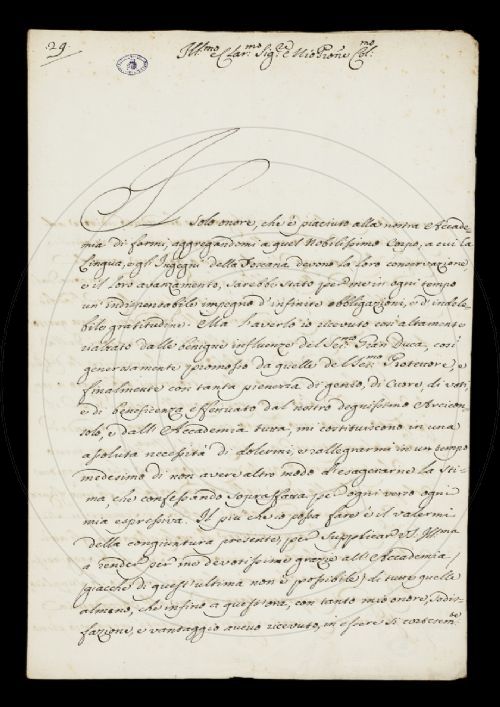 29.
Ill.mo e Clar.mo Sig.re e Mio Pròne Col.mo
Il Solo onore, che è piaciuto alla nostra Accade-
mia di farmi, aggregandomi a quel Nobilissimo Corpo, a cui la
Lingua, e gli Ingegni della Toscana devono la loro conservazione
e il loro avanzamento, sarebbe stato per me in ogni tempo
un' indispensabile impegno d'infinite obbligazioni, e d' indele-
bile gratitudine. Ma l'averlo io ricevuto così altamente
dalle benigne influenze del Ser.mo Gran Duca, così
generosamente promosso da quelle del Ser.mo Protettore, e
finalmente con tanta pienezza di genio, di Cuore, di voti,
e di beneficenza effettuato dal nostro degnissimo Arcicon-
solo, e dall' Accademia tutta, mi costituiscono in una
assoluta necessità di dolermi, e rallegrarmi in un tempo
medesimo di non avere altro modo d'esagerarne la Sti-
ma, che confessando Sopraffatta per ogni verso ogni
mia espressiva. Il più che io possa fare è il valermi
della congiuntura presente, per Supplicar V. S. Ill.ma
a render per me devotissime grazie all' Accademia,
(giacché di quest' ultima non è possibile) di tutte quelle
almeno, che infino a quest' ora, con tanto mio onore, Sodis-
fazione, e vantaggio avevo ricevuto, in essere sì cortesem.te